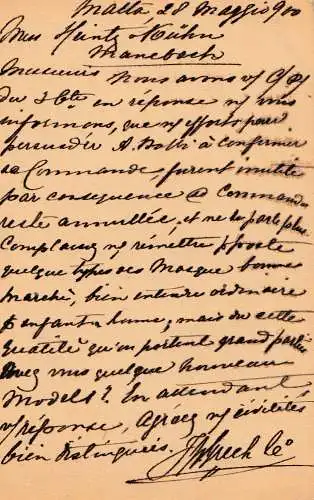 Malta 28 Maggio 900
Mess Heintz & Kühn
Manebach
Messieurs Nous avons v/ C/P
du 3 Cte en réponse n/ vous
informons, que n/ efforts pour
persuader A. à confirmer
sa Commande, furent inutile
par consequence Command
reste annullée. et ne la parle plus
n/ remettre p poste
quelque types des Masque bonne
marché, bien entendu ordinaire
p enfant & home; mais du cette
qualité qu'on portent grand
Avez vous quelque nouveau
Models? En attendant
v/ réponse, Agréez n/ civilités
bien distinguées.